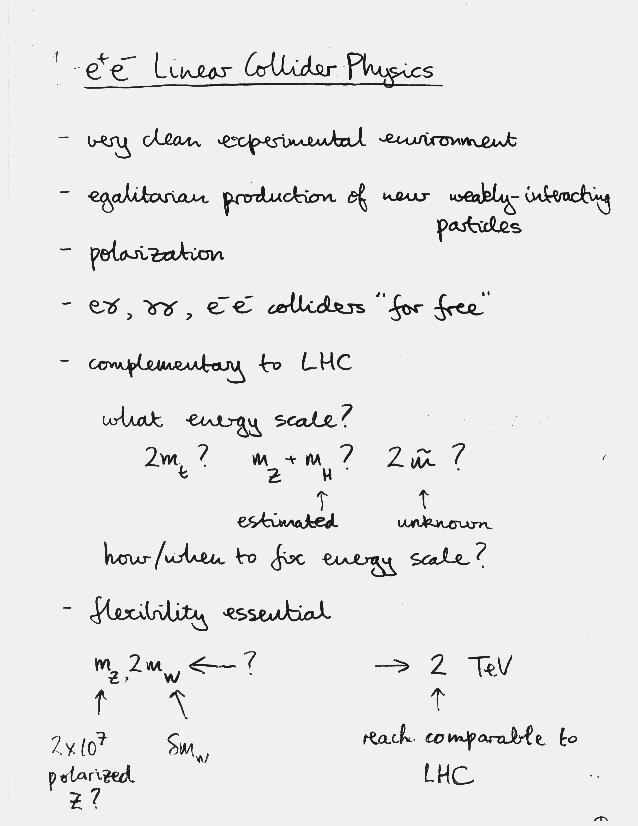 e⁺e⁻ Linear Collider Physics
- very clean experimental environment
- egalitarian production of new weakly-interacting
particles
- polarization
- eγ, γγ, e⁻e⁻ colliders "for free"
- complementary to LHC
what energy scale?
2m_t ? m_Z + m_H ? 2m̃ ?
↑ ↑
estimated unknown
how/when to fix energy scale?
- flexibility essential
m_Z, 2m_W ← ? → 2 TeV
↑ ↖ ↑
2x10⁷ δm_W reach comparable to
polarized LHC
Z ?